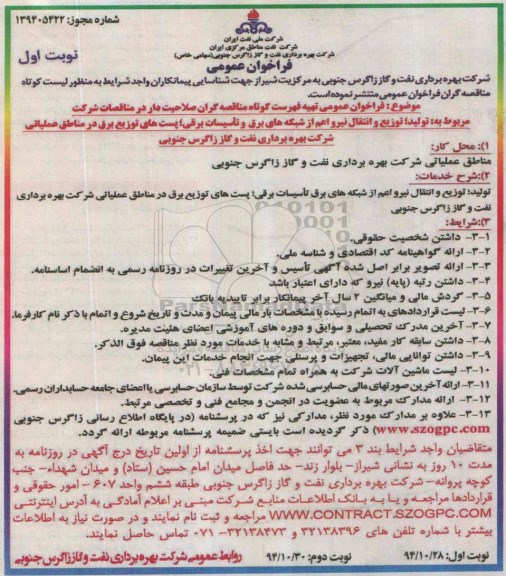 شماره مجوز: ۱۳۹۴۰۵۴۲۲
شرکت ملی نفت ایران
شرکت نفت مناطق مرکزی ایران
شرکت بهره برداری نفت و گاز زاگرس جنوبی(سهامی خاص)
نوبت اول
فراخوان عمومی
شرکت بهره برداری نفت و گاز زاگرس جنوبی به مرکزیت شیراز جهت شناسایی پیمانکاران واجد شرایط به منظور لیست کوتاه
مناقصه گران فراخوان عمومی منتشر نموده است.
موضوع : فراخوان عمومی تهیه فهرست کوتاه مناقصه گران صلاحیت دار در مناقصات شرکت
مربوط به: تولید؛ توزیع و انتقال نیرو اعم از شبکه های برق و تأسیسات برقی؛ پست های توزیع برق در مناطق عملیاتی
شرکت بهره برداری نفت و گاز زاگرس جنوبی
۱): محل کار:
مناطق عملیاتی شرکت بهره برداری نفت و گاز زاگرس جنوبی
۲):شرح خدمات:
تولید؛ توزیع و انتقال نیرو اعم از شبکه های برق تأسیسات برقی؛ پست های توزیع برق در مناطق عملیاتی شرکت بهره برداری
نفت و گاز زاگرس جنوبی
۳):شرایط:
۳-۱- داشتن شخصیت حقوقی.
۳-۲- ارائه گواهینامه کد اقتصادی و شناسه ملی.
۳-۳- ارائه تصویر برابر اصل شده آگهی تأسیس و آخرین تغییرات در روزنامه رسمی به انضمام اساسنامه.
۳-۴- داشتن رتبه (پایه) نیرو که دارای اعتبار باشد
۳-۵- گردش مالی و میانگین ۲ سال آخر پیمانکار برابر تاییدیه بانک
۳-۶- لیست قراردادهای به اتمام رسیده با مشخصات بار مالی پیمان و مدت و تاریخ شروع و اتمام با ذکر نام کارفرما.
۳-۷- آخرین مدرک تحصیلی و سوابق و دوره های آموزشی اعضای هیئت مدیره.
۳-۸- داشتن سابقه کار مفید، معتبر، مرتبط و مشابه با خدمات مورد نظر مناقصه فوق الذکر.
۳-۹- داشتن توانایی مالی، تجهیزات و پرسنلی جهت انجام خدمات این پیمان.
۳-۱۰- لیست ماشین آلات شرکت به همراه تمام مشخصات فنی.
۳-۱۱- ارائه آخرین صورتهای مالی حسابرسی شده شرکت توسط سازمان حسابرسی یا اعضای جامعه حسابداران رسمی.
۳-۱۲- ارائه مدارک مربوط به عضویت در انجمن و مجامع فنی و تخصصی مرتبط.
۳-۱۳- علاوه بر مدارک مورد نظر، مدارکی نیز که در پرسشنامه (در پایگاه اطلاع رسانی زاگرس جنوبی
www.szogpc.com) ذکر گردیده است بایستی ضمیمه پرسشنامه مربوطه ارائه گردد.
متقاضیان واجد شرایط بند ۳ می توانند جهت اخذ پرسشنامه از اولین تاریخ درج آگهی در روزنامه به
مدت ۱۰ روز به نشانی شیراز- بلوار زند- حد فاصل میدان امام حسین (ستاد) و میدان شهداء- جنب
کوچه پروانه- شرکت بهره برداری نفت و گاز زاگرس جنوبی طبقه ششم واحد ۶۰۷ - امور حقوقی و
قراردادها مراجعه و یا به بانک اطلاعات منابع شرکت مبنی بر اعلام آمادگی به آدرس اینترنتی
WWW.CONTRACT.SZOGPC.COM مراجعه و ثبت نام نمایند و در صورت نیاز به اطلاعات
بیشتر با شماره تلفن های ۳۲۱۳۸۳۹۶ و ۳۲۱۳۸۴۷۳-۰۷۱ تماس حاصل نمایند.
نوبت اول: ۹۴/۱۰/۲۸ نوبت دوم: ۹۴/۱۰/۳۰ روابط عمومی شرکت بهره برداری نفت و گاز زاگرس جنوبی